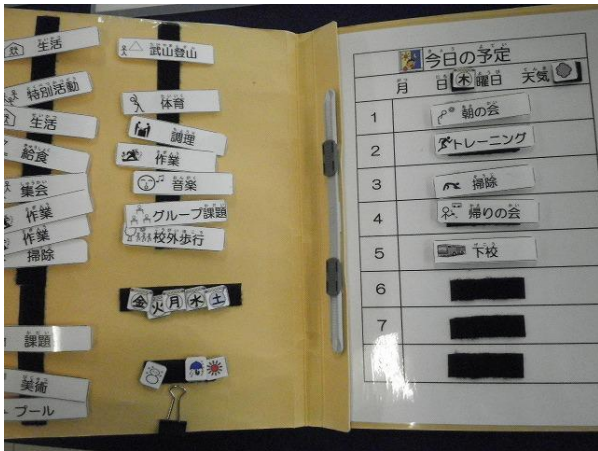 生活
特別活動
生活
給食
集会
作業
作業
掃除
課題
美術
プール
武山登山
体育
調理
作業
音楽
グループ課題
校外歩行
金 火 月 水 土
今日の予定
月 日 木 曜日 天気
1 朝の会
2 トレーニング
3 掃除
4 帰りの会
5 下校
6
7